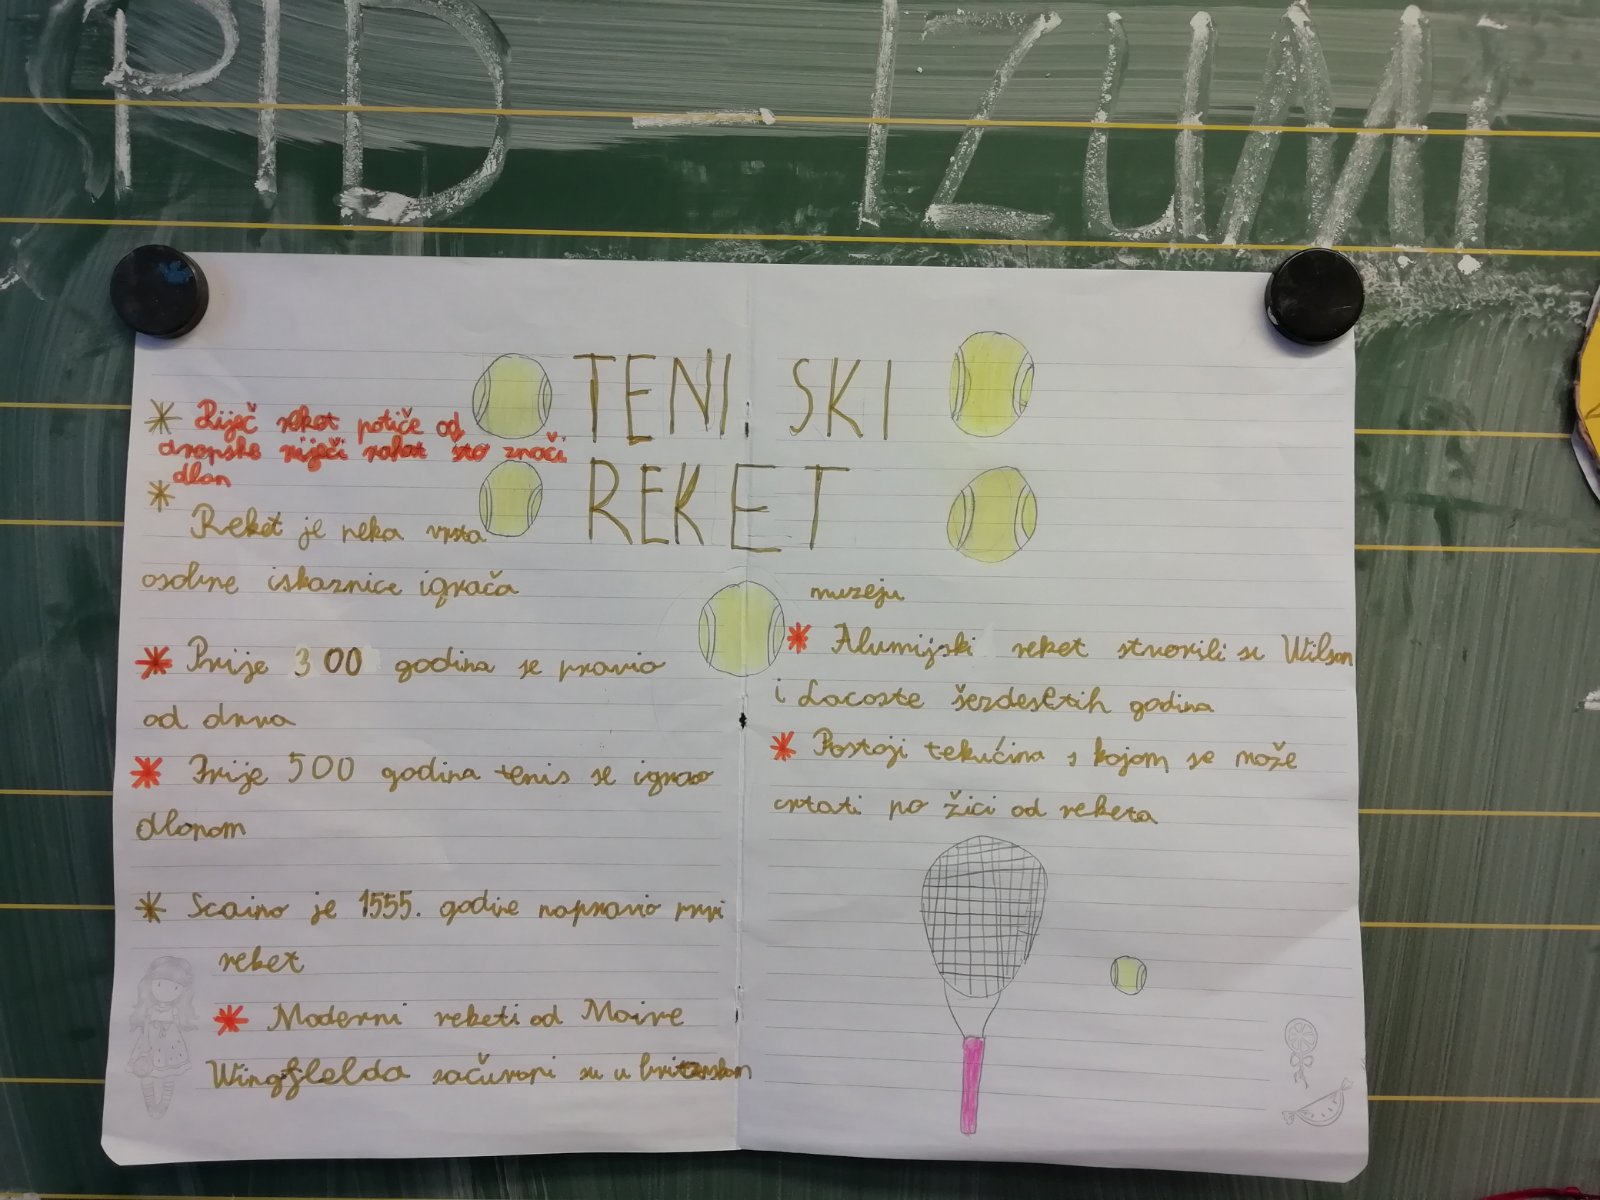 PID - IZUMI
TENISKI
REKET
* Riječ reket potiče od
arapske riječi rahat što znači
dlan
* Reket je neka vrsta
osobne iskaznice igrača
* Prije 300 godina se pravio
od drva
* Prije 500 godina tenis se igrao
dlanom
* Scaino je 1555. godine napravio prvi
reket
* Moderni reketi od Moire
Wingflelda sačuvani su u britanskom
muzeju
* Alumijski reket stvorili su Wilson
i Lacoste šezdesetih godina
* Postoji tekućina s kojom se može
crtati po žici od reketa